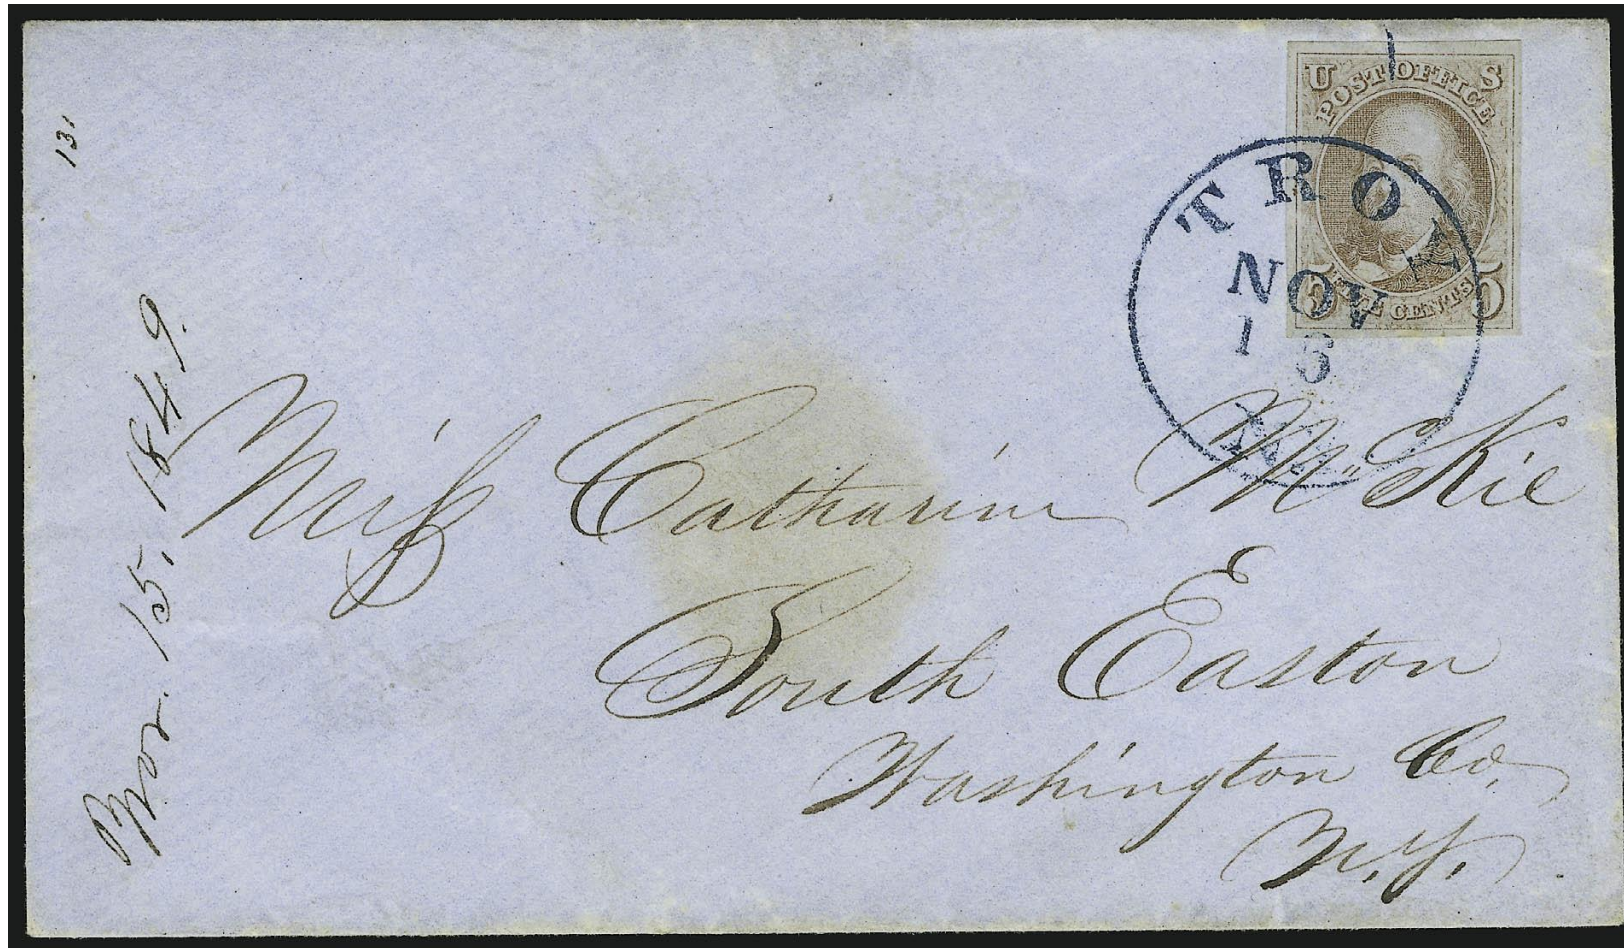 131
Nov. 15. 1849.
U S
POST OFFICE
FIVE CENTS
5 5
TROY
NOV
16
Miss Catharine McKie
South Easton
Washington Co.
N.Y.